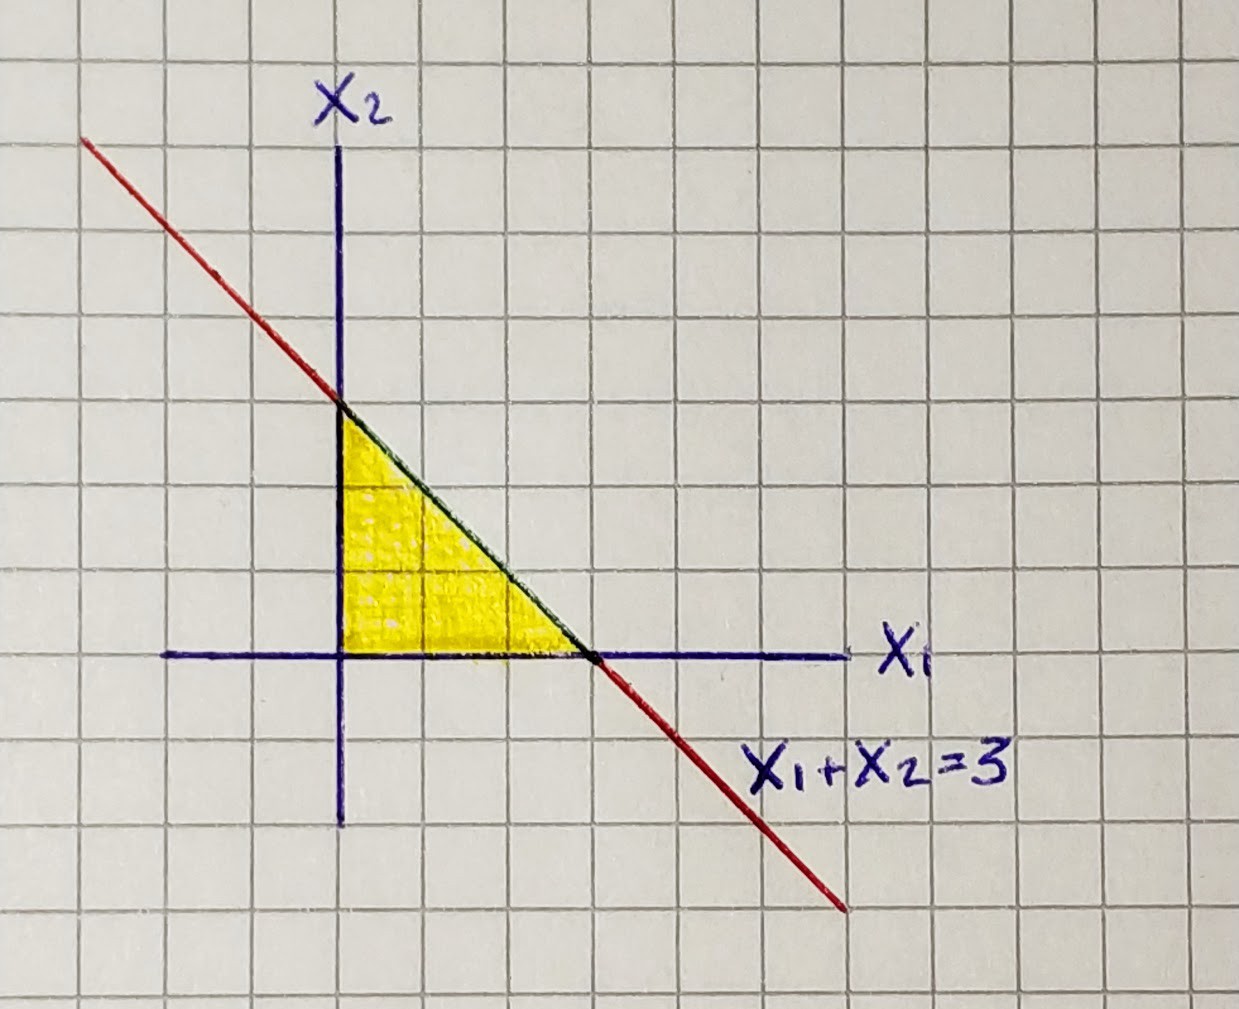 X₂
X₁
X₁+X₂=3